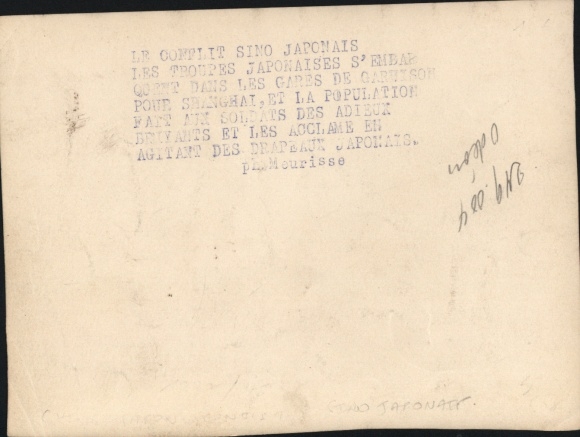 LE CONFLIT SINO JAPONAIS
LES TROUPES JAPONAISES S'EMBAR
QUENT DANS LES GARES DE GARNISON
POUR SHANGHAI, ET LA POPULATION
FAIT AUX SOLDATS DES ADIEUX
BRUYANTS ET LES ACCLAME EN
AGITANT DES DRAPEAUX JAPONAIS.
ph. Meurisse
Odéon
SINO JAPONAIS.